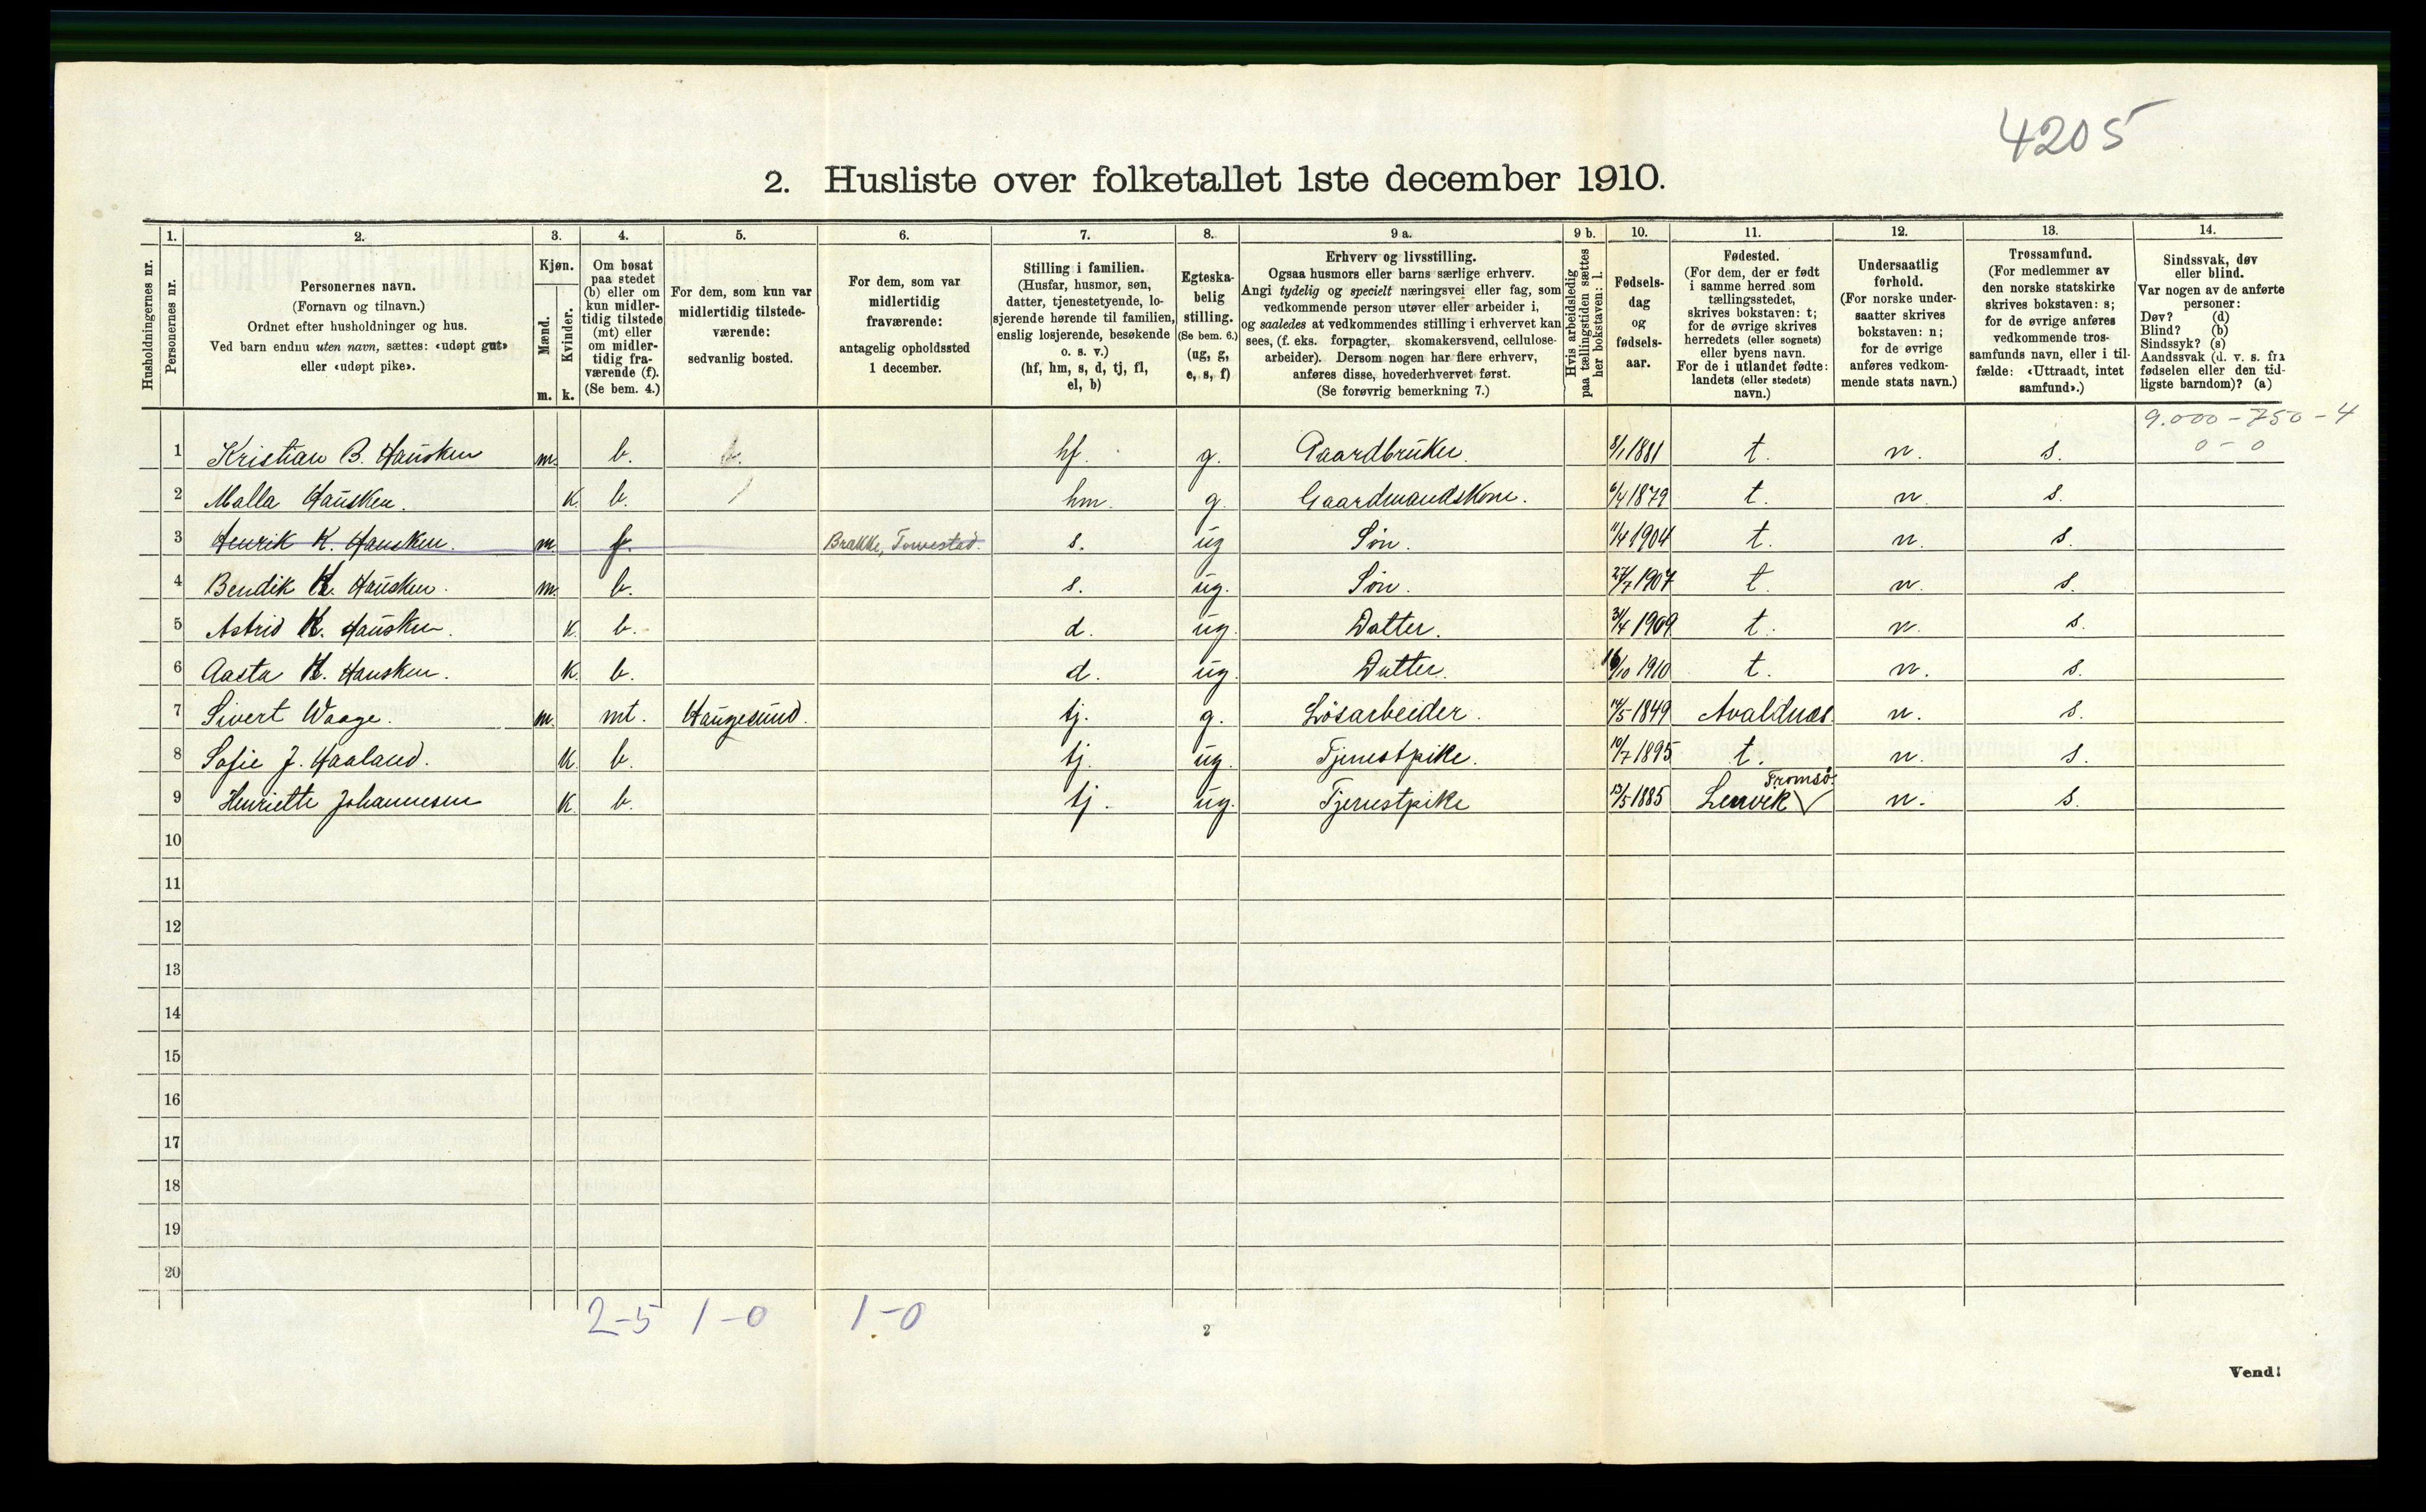 4205
2. Husliste over folketallet 1ste december 1910.
Husholdningernes nr.
1. Personernes nr.
2. Personernes navn. (Fornavn og tilnavn.) Ordnet efter husholdninger og hus. Ved barn endnu uten navn, sættes: «udøpt gut» eller «udøpt pike».
3. Kjøn. Mænd. m. Kvinder. k.
4. Om bosat paa stedet (b) eller om kun midler-tidig tilstede (mt) eller om midler-tidig fra-værende (f). (Se bem. 4.)
5. For dem, som kun var midlertidig tilstede-værende: sedvanlig bosted.
6. For dem, som var midlertidig fraværende: antagelig opholdssted 1 december.
7. Stilling i familien. (Husfar, husmor, søn, datter, tjenestetyende, lo-sjerende hørende til familien, enslig losjerende, besøkende o. s. v.) (hf, hm, s, d, tj, fl, el, b)
8. Egteska-belig stilling. (Se bem. 6.) (ug, g, e, s, f)
9 a. Erhverv og livsstilling. Ogsaa husmors eller barns særlige erhverv. Angi tydelig og specielt næringsvei eller fag, som vedkommende person utøver eller arbeider i, og saaledes at vedkommendes stilling i erhvervet kan sees, (f. eks. forpagter, skomakersvend, cellulose-arbeider). Dersom nogen har flere erhverv, anføres disse, hovederhvervet først. (Se forøvrig bemerkning 7.)
9 b. Hvis arbeidsledig paa tællingstiden sættes her bokstaven: l.
10. Fødsels-dag og fødsels-aar.
11. Fødested. (For dem, der er født i samme herred som tællingsstedet, skrives bokstaven: t; for de øvrige skrives herredets (eller sognets) eller byens navn. For de i utlandet fødte: landets (eller stedets) navn.)
12. Undersaatlig forhold. (For norske under-saatter skrives bokstaven: n; for de øvrige anføres vedkom-mende stats navn.)
13. Trossamfund. (For medlemmer av den norske statskirke skrives bokstaven: s; for de øvrige anføres vedkommende tros-samfunds navn, eller i til-fælde: «Uttraadt, intet samfund».)
14. Sindssvak, døv eller blind. Var nogen av de anførte personer: Døv? (d) Blind? (b) Sindssyk? (s) Aandssvak (d. v. s. fra fødselen eller den tid-ligste barndom)? (a)
9.000 - 750 - 4
0 - 0
1 Kristian B. Hausken m. b. hf. g. Gaardbruker. 8/1 1881 t. n. s.
2 Malla Hausken. K. b. hm. g. Gaardmandskone. 6/4 1879 t. n. s.
3 Henrik K. Hausken. m. f. Brakke, Torvestad. s. ug Søn. 11/4 1904 t. n. s.
4 Bendik K. Hausken. m. b. s. ug. Søn. 27/7 1907 t. n. s.
5 Astrid K. Hausken. K. b. d. ug. Datter. 1909 t. n. s.
6 Aasta K. Hausken. K. b. d. ug. Datter. 16/10 1910 t. n. s.
7 Sivert Waage. m. mt. Haugesund. tj. g. Løsarbeider. 14/5 1849 Avaldnæs n. s.
8 Sofie J. Haaland. K. b. tj. ug. Tjenestpike. 10/7 1895 t. n. s.
9 Henriette Johannesen K. b. tj. ug. Tjenestpike 13/5 1885 Lenvik Tromsø. n. s.
10
11
12
13
14
15
16
17
18
19
20
2-5 1-0 1-0
2
Vend!